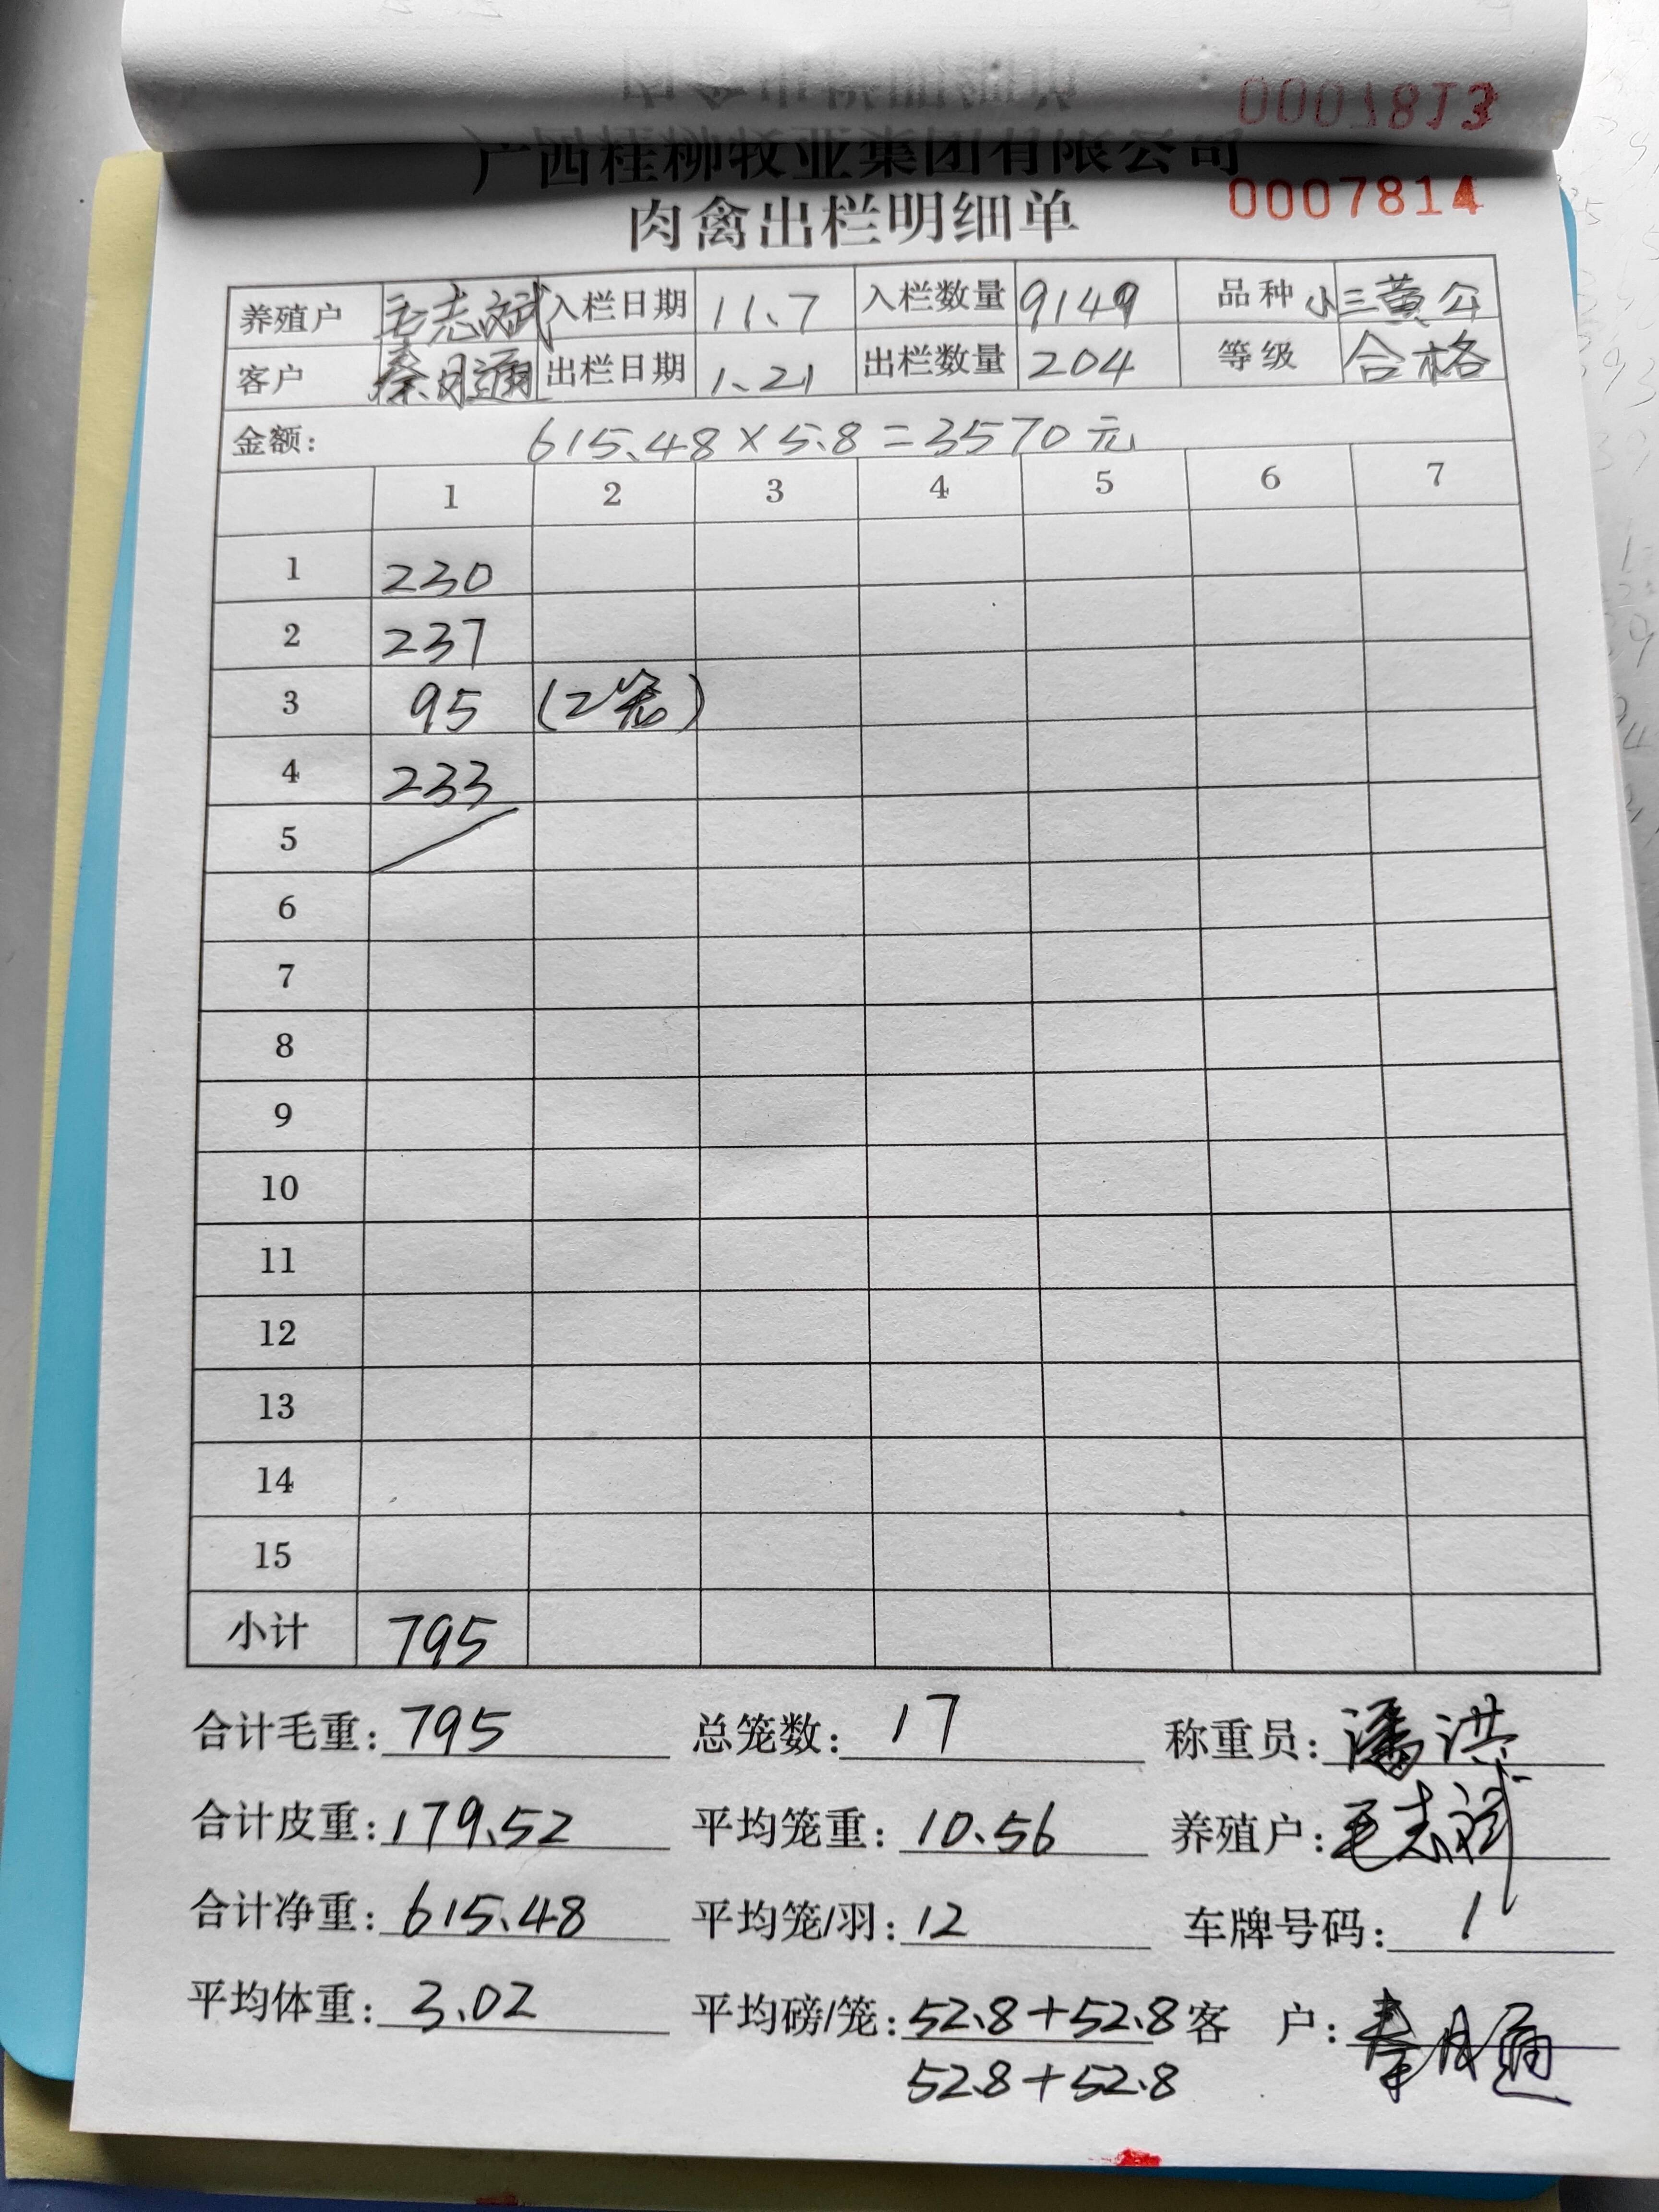 0007813
广西桂柳牧业集团有限公司
肉禽出栏明细单 0007814
养殖户 毛志斌 入栏日期 11.7 入栏数量 9149 品种 小三黄公
客户 秦月通 出栏日期 1.21 出栏数量 204 等级 合格
金额: 615.48×5.8=3570元
1 2 3 4 5 6 7
1 230
2 237
3 95 (2笼)
4 233
5
6
7
8
9
10
11
12
13
14
15
小计 795
合计毛重: 795 总笼数: 17 称重员: 潘洪
合计皮重: 179.52 平均笼重: 10.56 养殖户: 毛志斌
合计净重: 615.48 平均笼/羽: 12 车牌号码:
平均体重: 3.02 平均磅/笼: 52.8+52.8 客 户: 秦月通
52.8+52.8